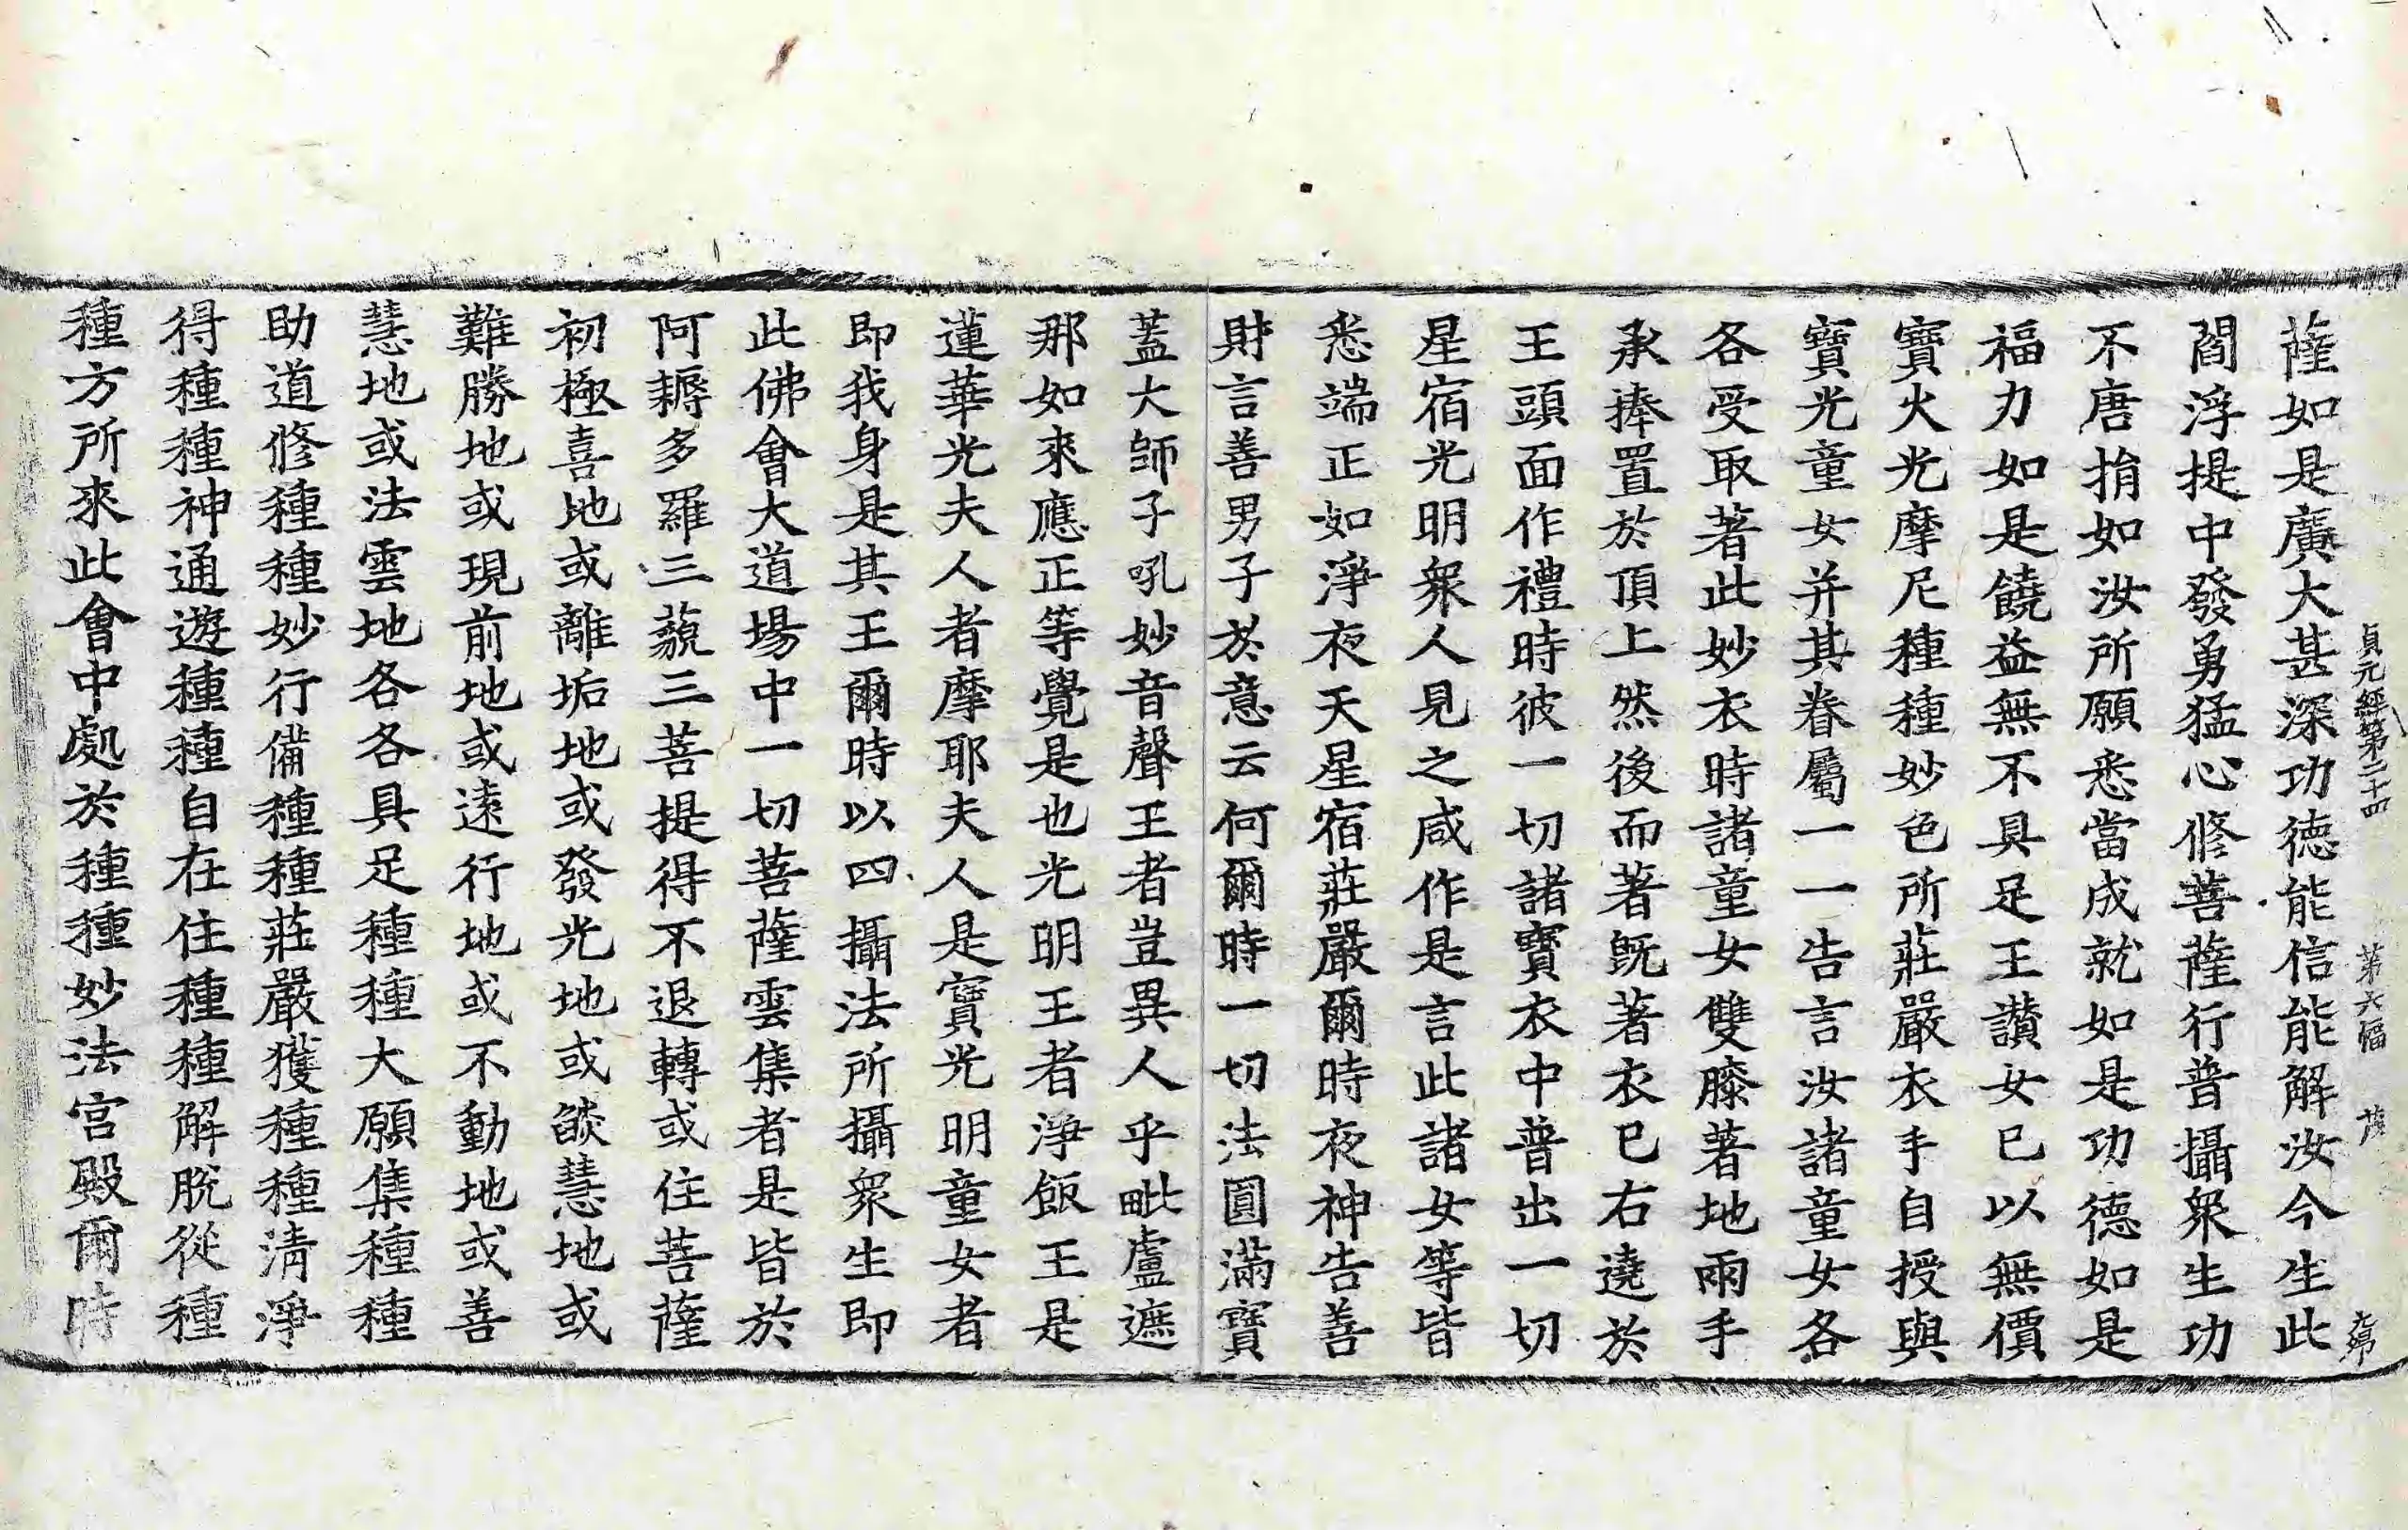 貞元經第二十四 第六幅 茂
薩如是廣大甚深功德能信能解汝今生此
閻浮提中發勇猛心修菩薩行普攝衆生功
不唐捐如汝所願悉當成就如是功德如是
福力如是饒益無不具足王讚女已以無價
寶火光摩尼種種妙色所莊嚴衣手自授與
寶光童女并其眷屬一一告言汝諸童女各
各受取著此妙衣時諸童女雙膝著地兩手
承捧置於頂上然後而著旣著衣已右遶於
王頭面作禮時彼一切諸寶衣中普出一切
星宿光明衆人見之咸作是言此諸女等皆
悉端正如淨夜天星宿莊嚴爾時夜神告善
財言善男子於意云何爾時一切法圓滿寶
蓋大師子吼妙音聲王者豈異人乎毗盧遮
那如來應正等覺是也光明王者淨飯王是
蓮華光夫人者摩耶夫人是寶光明童女者
即我身是其王爾時以四攝法所攝衆生即
此佛會大道場中一切菩薩雲集者是皆於
阿耨多羅三藐三菩提得不退轉或住菩薩
初極喜地或離垢地或發光地或燄慧地或
難勝地或現前地或遠行地或不動地或善
慧地或法雲地各各具足種種大願集種種
助道修種種妙行備種種莊嚴獲種種清淨
得種種神通遊種種自在住種種解脫從種
種方所來此會中處於種種妙法宮殿爾時